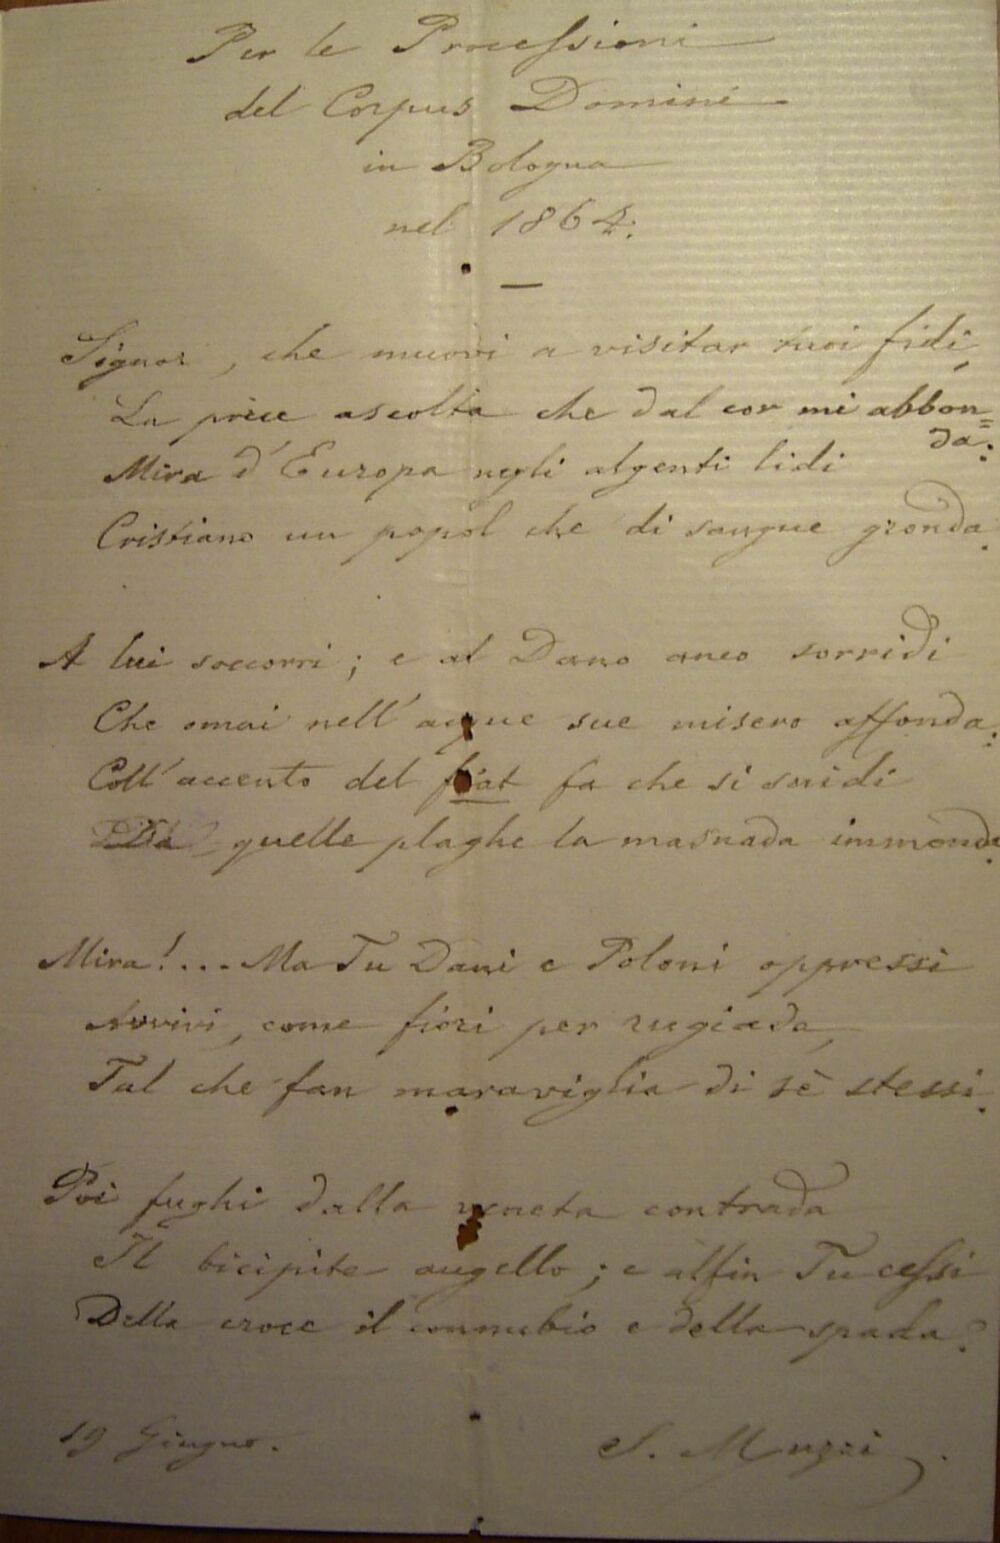 Per le Processioni
del Corpus Domini
in Bologna
nel 1864.
—
Signor, che muovi a visitar tuoi fidi,
La prece ascolta che dal cor mi abbon=
da:
Mira d'Europa negli algenti lidi
Cristiano un popol che di sangue gronda.
A lui soccorri; e al Dano anco sorridi
Che omai nell'acque sue misero affonda:
Coll'accento del fiat fa che si snidi
Da quelle plaghe la masnada immonda.
Mira!... Ma Tu Dani e Poloni oppressi
Avvivi, come fiori per rugiada,
Tal che fan maraviglia di sè stessi.
Poi fughi dalla veneta contrada
Il bicipite augello; e alfin Tu cessi
Della croce il connubio e della spada.
19 Giugno.
S. Muzzi.